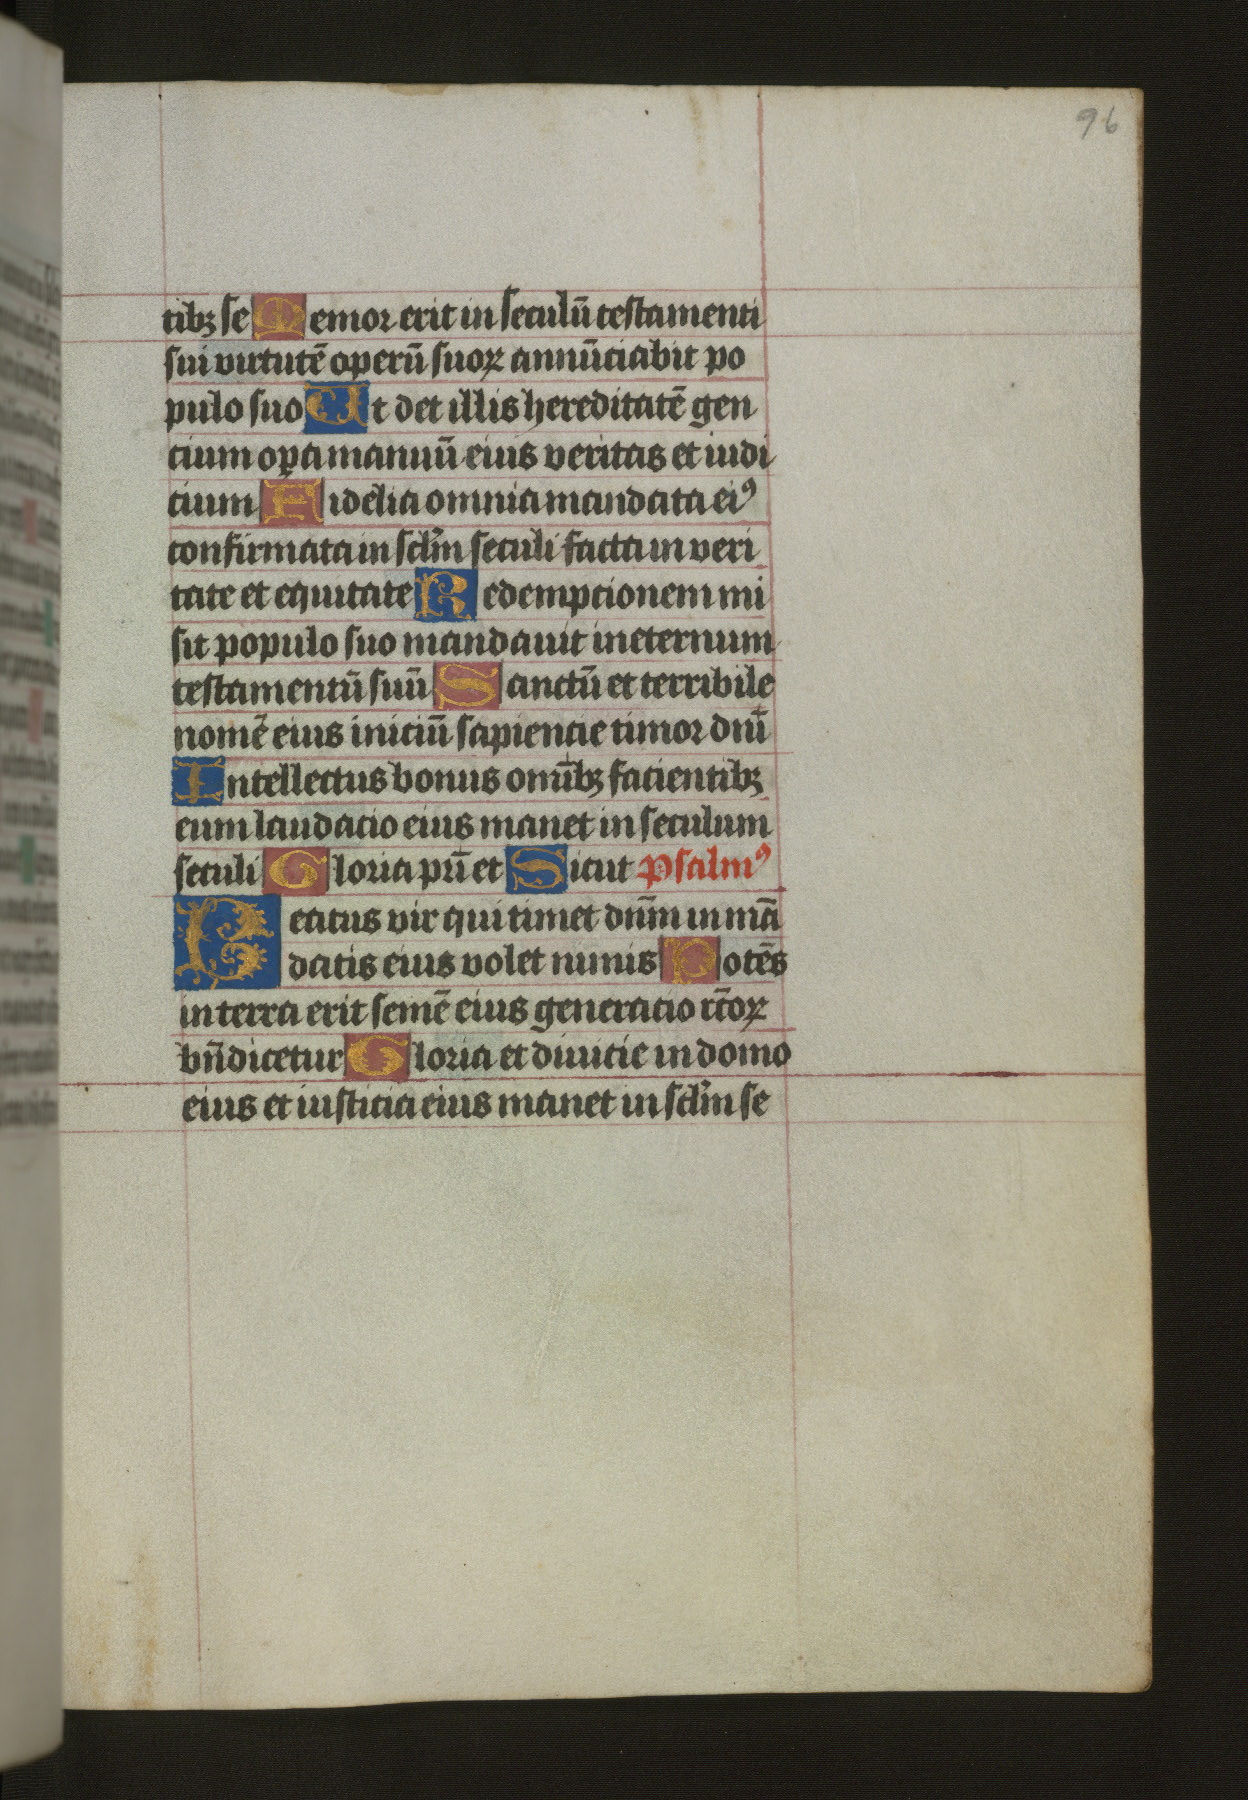 96
tibꝫ se Memor erit in seculū testamenti
sui virtutē operū suoꝝ annūciabit po
pulo suo Ut det illis hereditatē gen
cium oꝑa manuū eius veritas et iudi
cium Fidelia omnia mandata eiꝰ
confirmata in sclm̄ seculi facta in veri
tate et equitate Redempcionem mi
sit populo suo mandauit ineternum
testamentū suū Sanctū et terribile
nomē eius iniciū sapiencie timor dnī
Intellectus bonus omībꝫ facientibꝫ
eum laudacio eius manet in seculum
seculi Gloria pr̄i et Sicut Psalmꝰ
Beatus vir qui timet dnm̄ in mā
datis eius volet nimis Potēs
in terra erit semē eius generacio rc̄oꝝ
bn̄dicetur Gloria et diuicie in domo
eius et iusticia eius manet in sclm̄ se